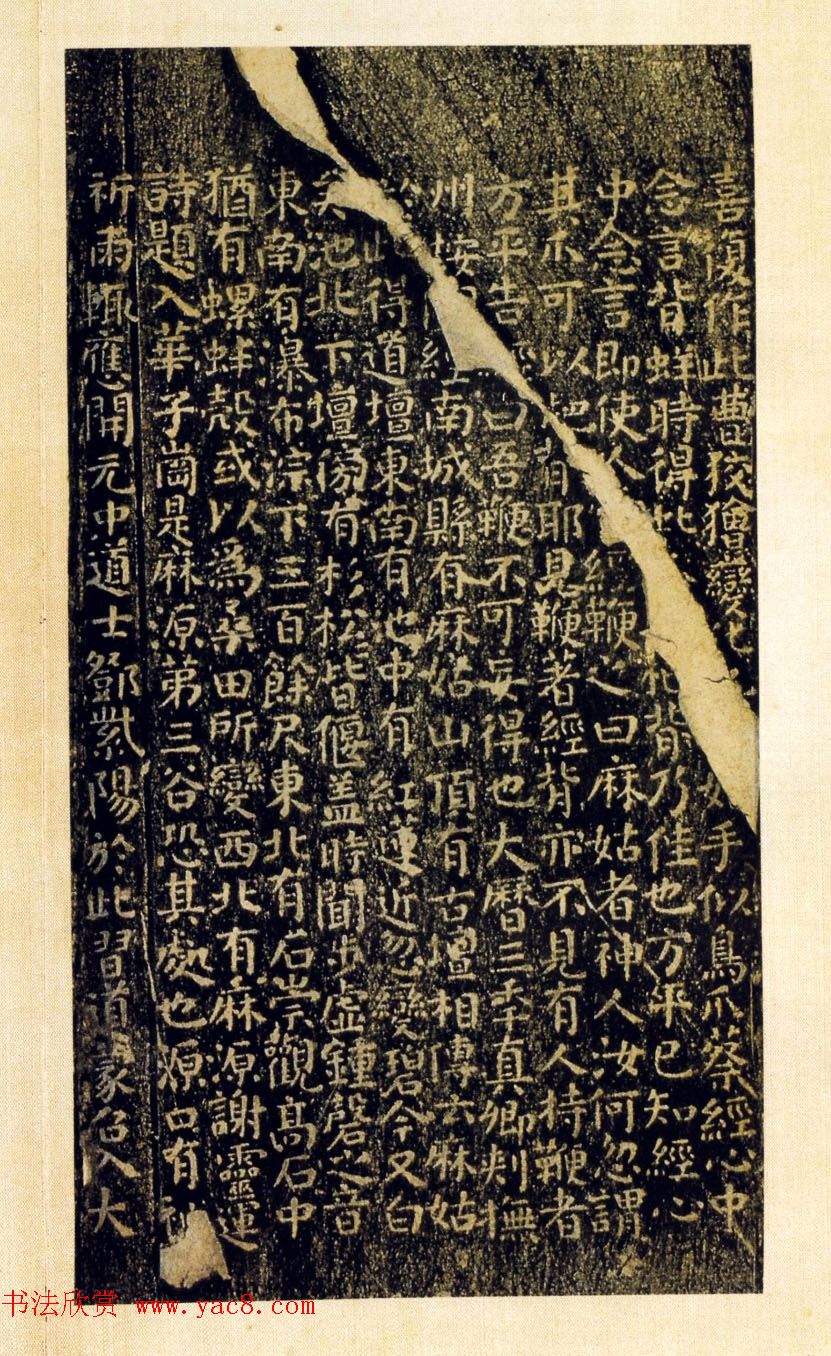 喜復作此曹狡獪變化 手似鳥爪蔡經心中
念言背蛘時得此 爬背乃佳也方平已知經心
中念言即使人 經鞭之曰麻姑者神人汝何忽謂
其爪可以爬背耶見鞭著經背亦不見有人持鞭者
方平告經曰吾鞭不可妄得也大曆三年真卿刾撫
州按 經南城縣有麻姑山頂有古壇相傳云麻姑
於此得道壇東南有池中有紅蓮近忽變碧今又白
矣池北下壇傍有杉松皆偃盖時聞步虛鍾磬之音
東南有瀑布淙下三百餘尺東北有石崇觀高石中
猶有螺蚌殻或以為桑田所變西北有麻源謝靈運
詩題入華子崗是麻源第三谷恐其處也源口有神
祈雨輒應開元中道士鄧紫陽於此習道蒙召入大
书法欣赏 www.yac8.com